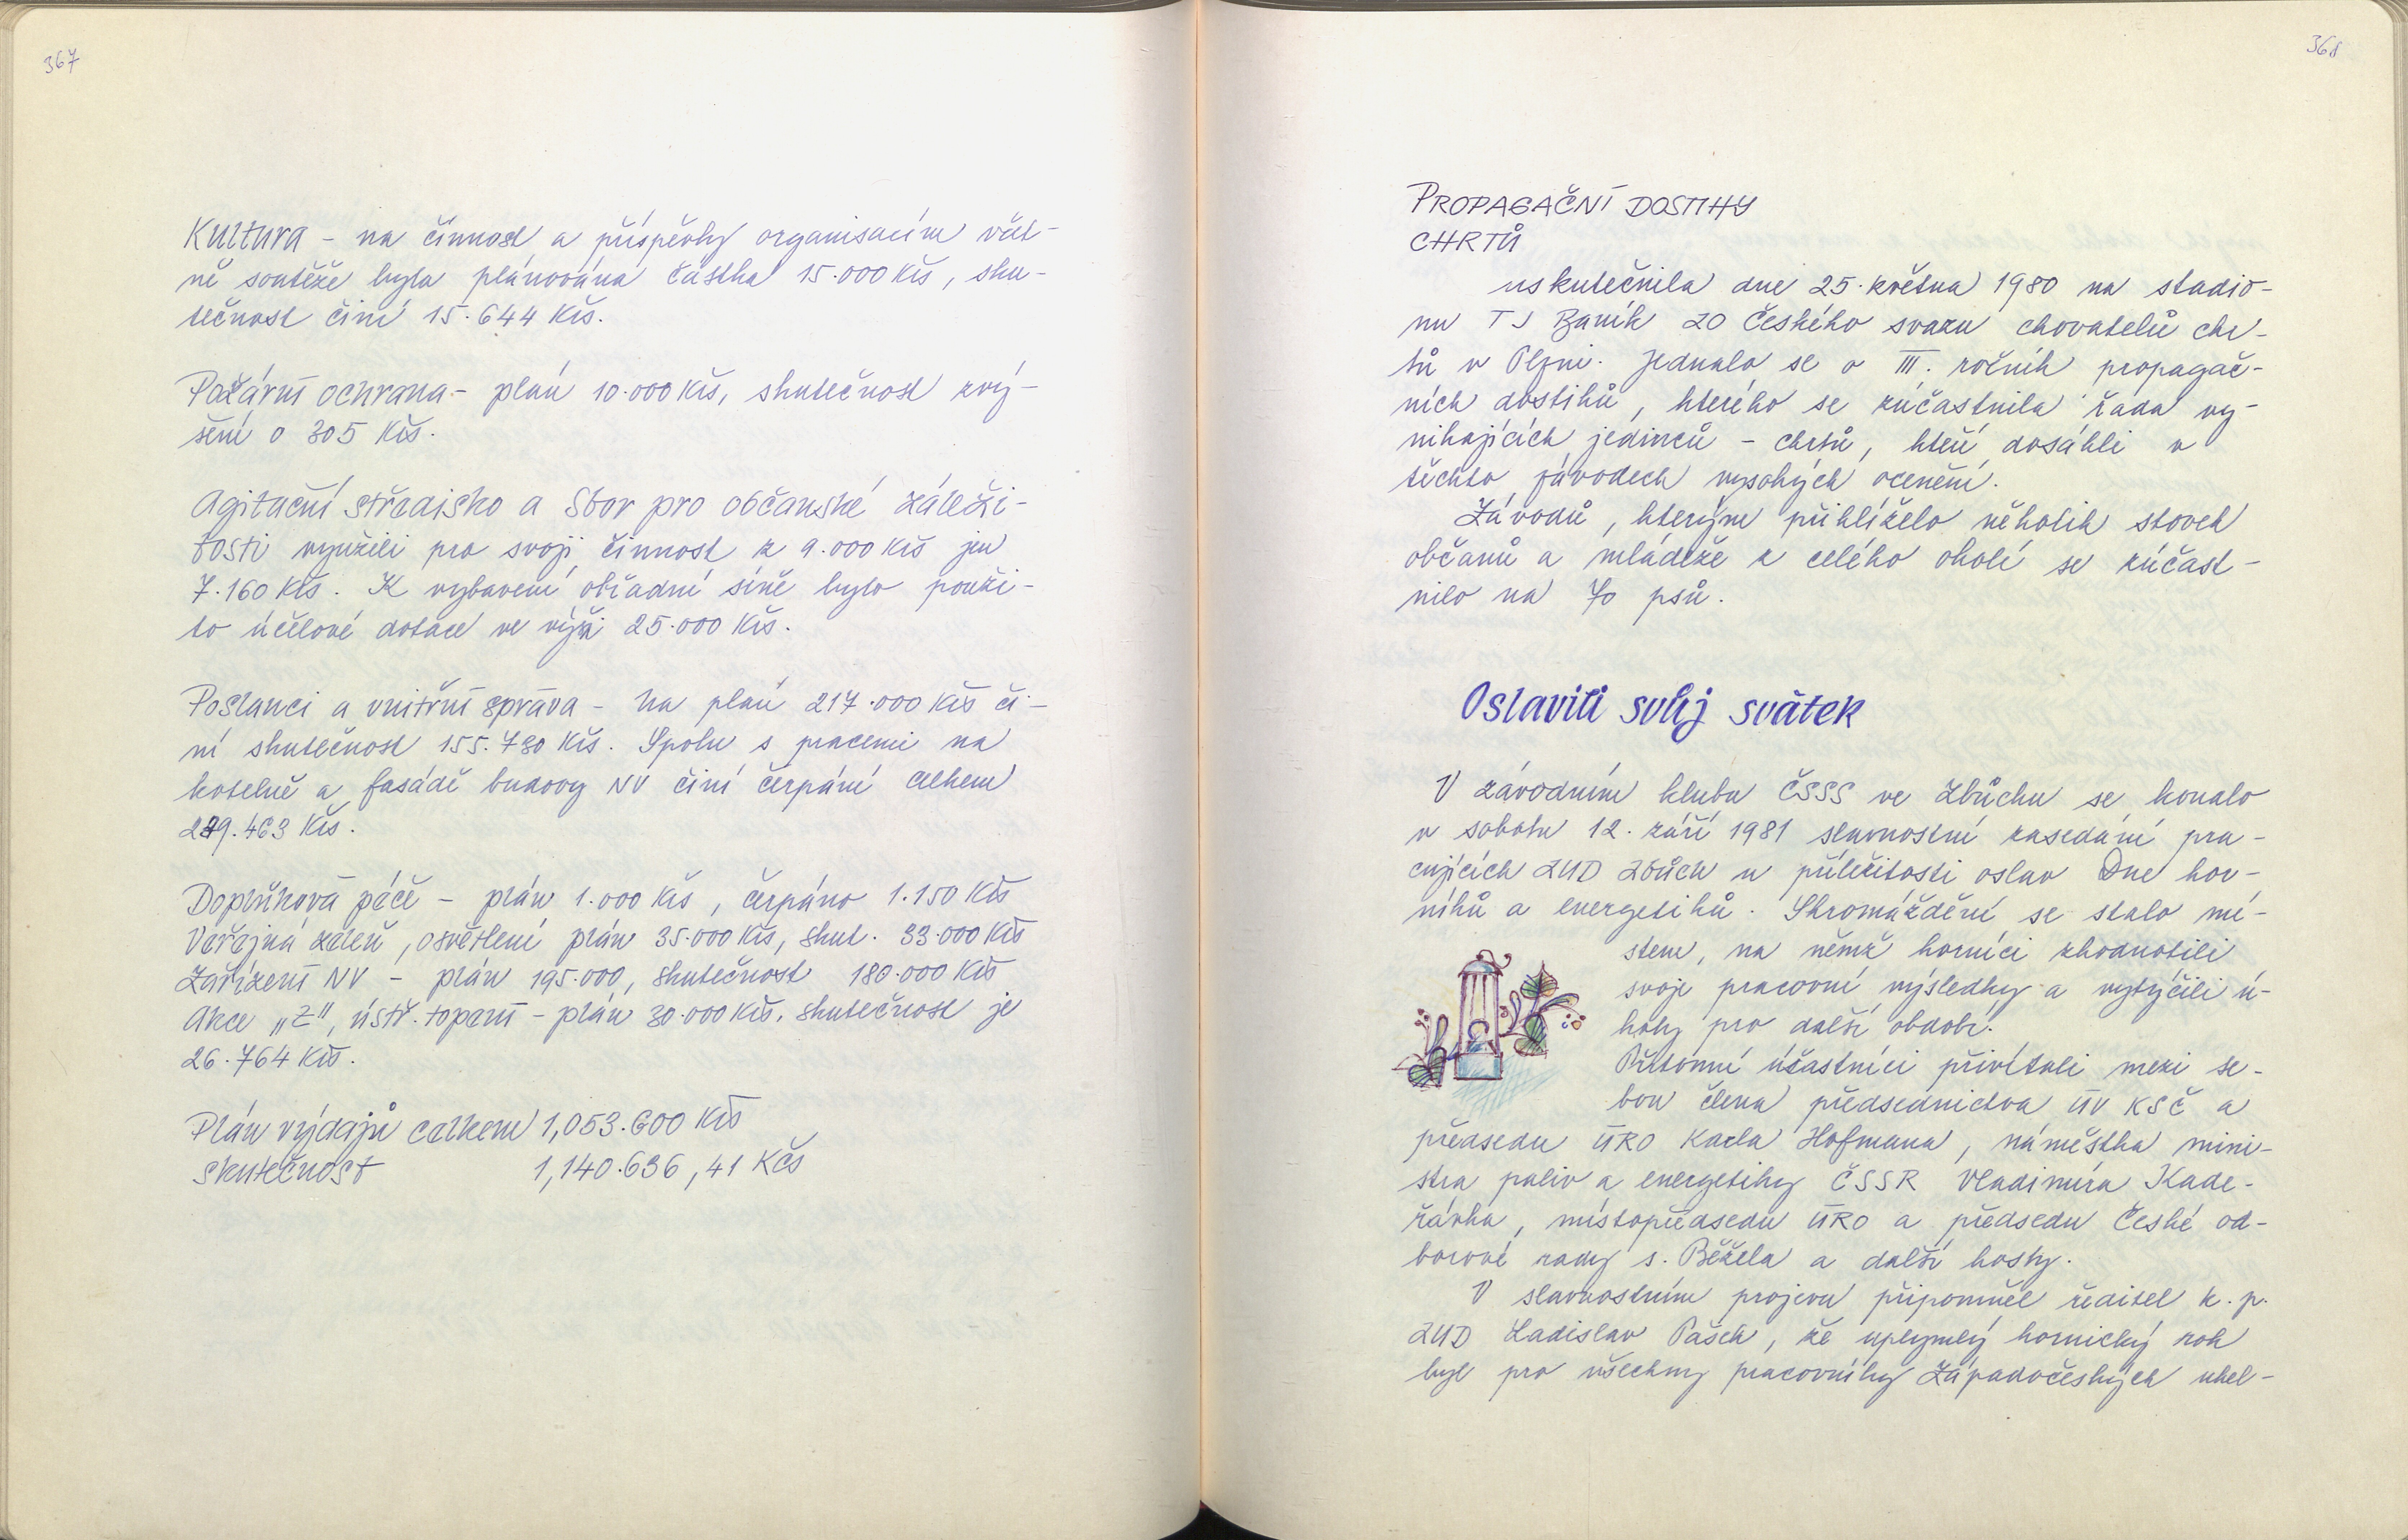 367
Kultura – na činnost a příspěvky organisacím včet-
ně soutěže byla plánována částka 15.000 Kčs, sku-
tečnost činí 15.644 Kčs.
Požární ochrana – plán 10.000 Kčs, skutečnost zvý-
šení o 305 Kčs.
Agitační středisko a Sbor pro občanské záleži-
tosti využili pro svoji činnost z 9.000 Kčs jen
7.160 Kčs. K vybavení obřadní síně bylo použi-
to účelové dotace ve výši 25.000 Kčs.
Poslanci a vnitřní správa – na plán 217.000 Kčs či-
ní skutečnost 155.780 Kčs. Spolu s pracemi na
kotelně a fasádě budovy NV činí čerpání celkem
289.463 Kčs.
Doplňková péče – plán 1.000 Kčs, čerpáno 1.150 Kčs
Veřejná zeleň, osvětlení plán 35.000 Kčs, skut. 33.000 Kčs
Zařízení NV – plán 195.000, skutečnost 180.000 Kčs
Akce „Z", ústř. topení – plán 30.000 Kčs, skutečnost je
26.764 Kčs.
Plán výdajů celkem 1,053.600 Kčs
skutečnost 1,140.636,41 Kčs
368
PROPAGAČNÍ DOSTIHY
CHRTŮ
uskutečnila dne 25. května 1980 na stadio-
nu TJ Baník ZO Českého svazu chovatelů chr-
tů v Plzni. Jednalo se o III. ročník propagač-
ních dostihů, kterého se zúčastnila řada vy-
nikajících jedinců – chrtů, kteří dosáhli v
těchto závodech vysokých ocenění.
Závodů, kterým přihlíželo několik stovek
občanů a mládeže z celého okolí se zúčast-
nilo na 70 psů.
Oslavili svůj svátek
V závodním klubu ČSSS ve Zbůchu se konalo
v sobotu 12. září 1981 slavnostní zasedání pra-
cujících ZUD Zbůch u příležitosti oslav Dne hor-
níků a energetiků. Shromáždění se stalo mí-
stem, na němž horníci zhodnotili
svoje pracovní výsledky a vytýčili ú-
koly pro další období.
Přítomní účastníci přivítali mezi se-
bou člena předsednictva ÚV KSČ a
předsedu ÚRO Karla Hofmana, náměstka mini-
stra paliv a energetiky ČSSR Vladimíra Kade-
řávka, místopředsedu ÚRO a předsedu České od-
borové rady s. Běžela a další hosty.
V slavnostním projevu připomněl ředitel k. p.
ZUD Ladislav Pašek, že uplynulý hornický rok
byl pro všechny pracovníky Západočeských uhel-